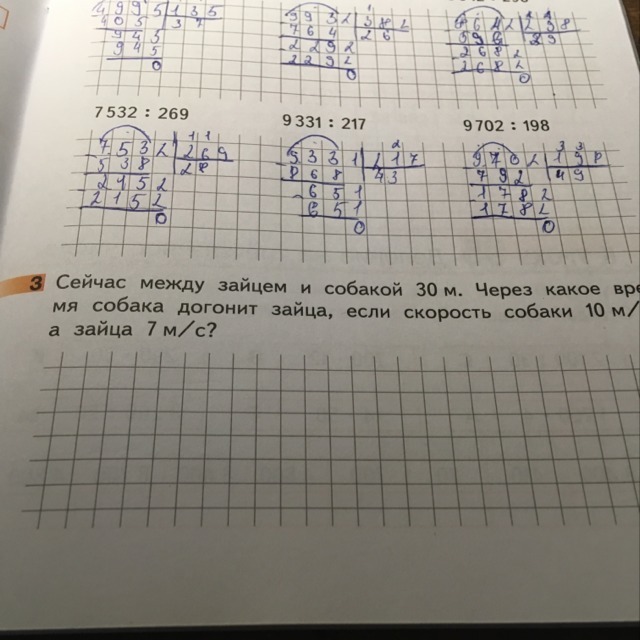 4995 135
405 37
945
945
0
9932 382
764 26
2292
2292
0
5960 29
2682
2682
0
7 532 : 269
9 331 : 217
9 702 : 198
1 1
7532 269
538 28
2152
2152
0
2
9331 217
868 43
651
651
0
3 3
9702 198
792 49
1782
1782
0
3 Сейчас между зайцем и собакой 30 м. Через какое вре
мя собака догонит зайца, если скорость собаки 10 м/
а зайца 7 м/с?